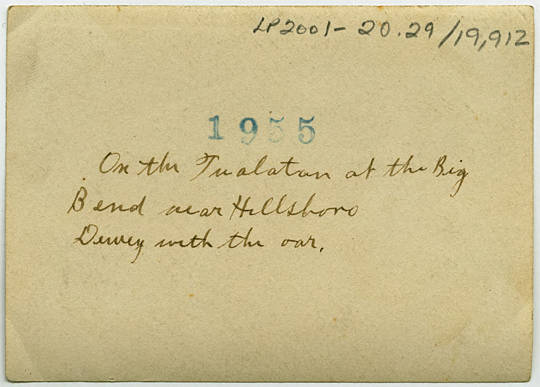 LP2001-20.29/19,912
1955
On the Tualatan at the Big
Bend near Hillsboro
Dewey with the oar.